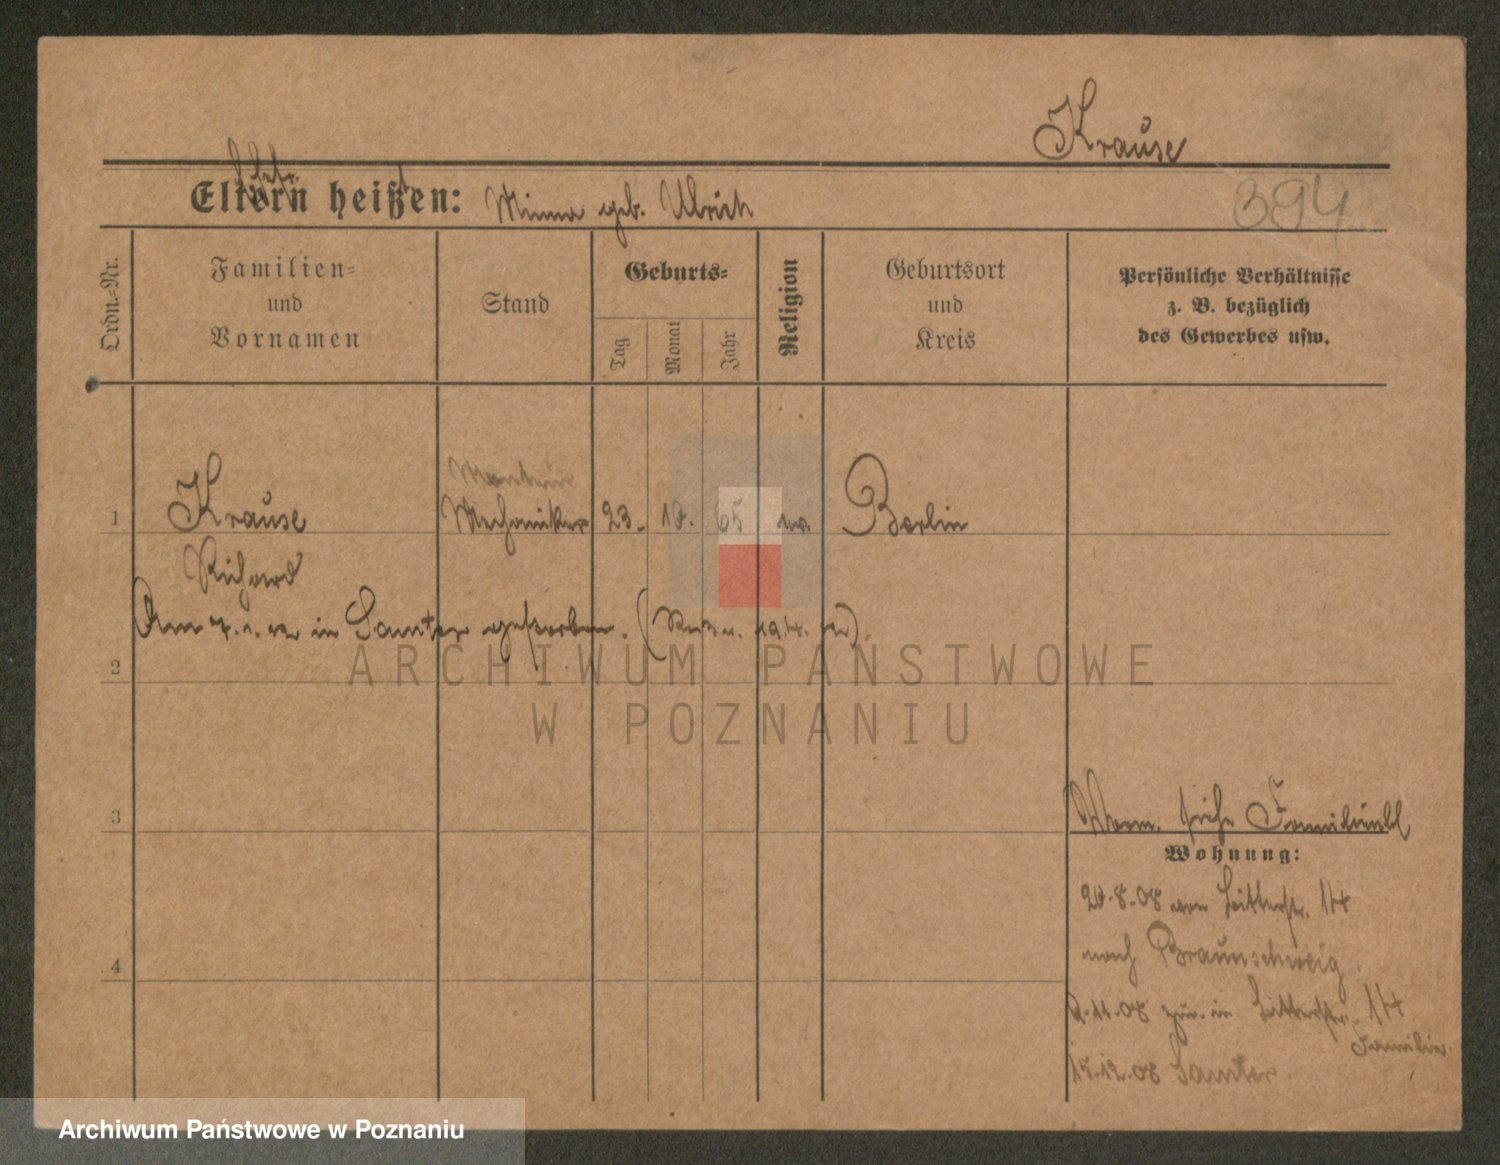 Krause
394
Eltern heißen: Minna geb. Ulrich
Ordn.-Nr.
Familien-
und
Vornamen
Stand
Geburts-
Tag
Monat
Jahr
Religion
Geburtsort
und
Kreis
Persönliche Verhältnisse
z. B. bezüglich
des Gewerbes usw.
Monteur
1 Krause Mechaniker 23. 10. 65 ev. Berlin
Richard
Am in Samter gestorben.
2
ARCHIWUM PAŃSTWOWE
W POZNANIU
3
siehe Familienbl
Wohnung:
20.8.08 von 14
4
nach Braunschweig.
11.08 in 14
Familie.
15.12.08 Samter.
Archiwum Państwowe w Poznaniu